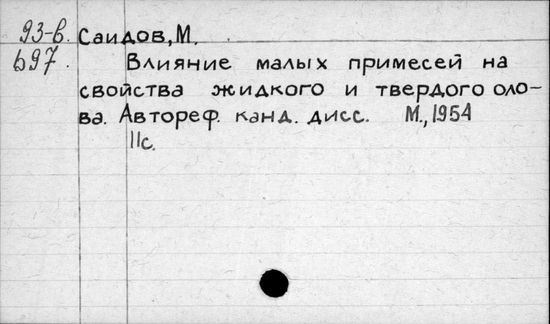 93-в. Саидов, М.
b97. Влияние малых примесей на
свойства жидкого и твердого оло-
ва. Автореф. канд. дисс. М., 1954
11с.